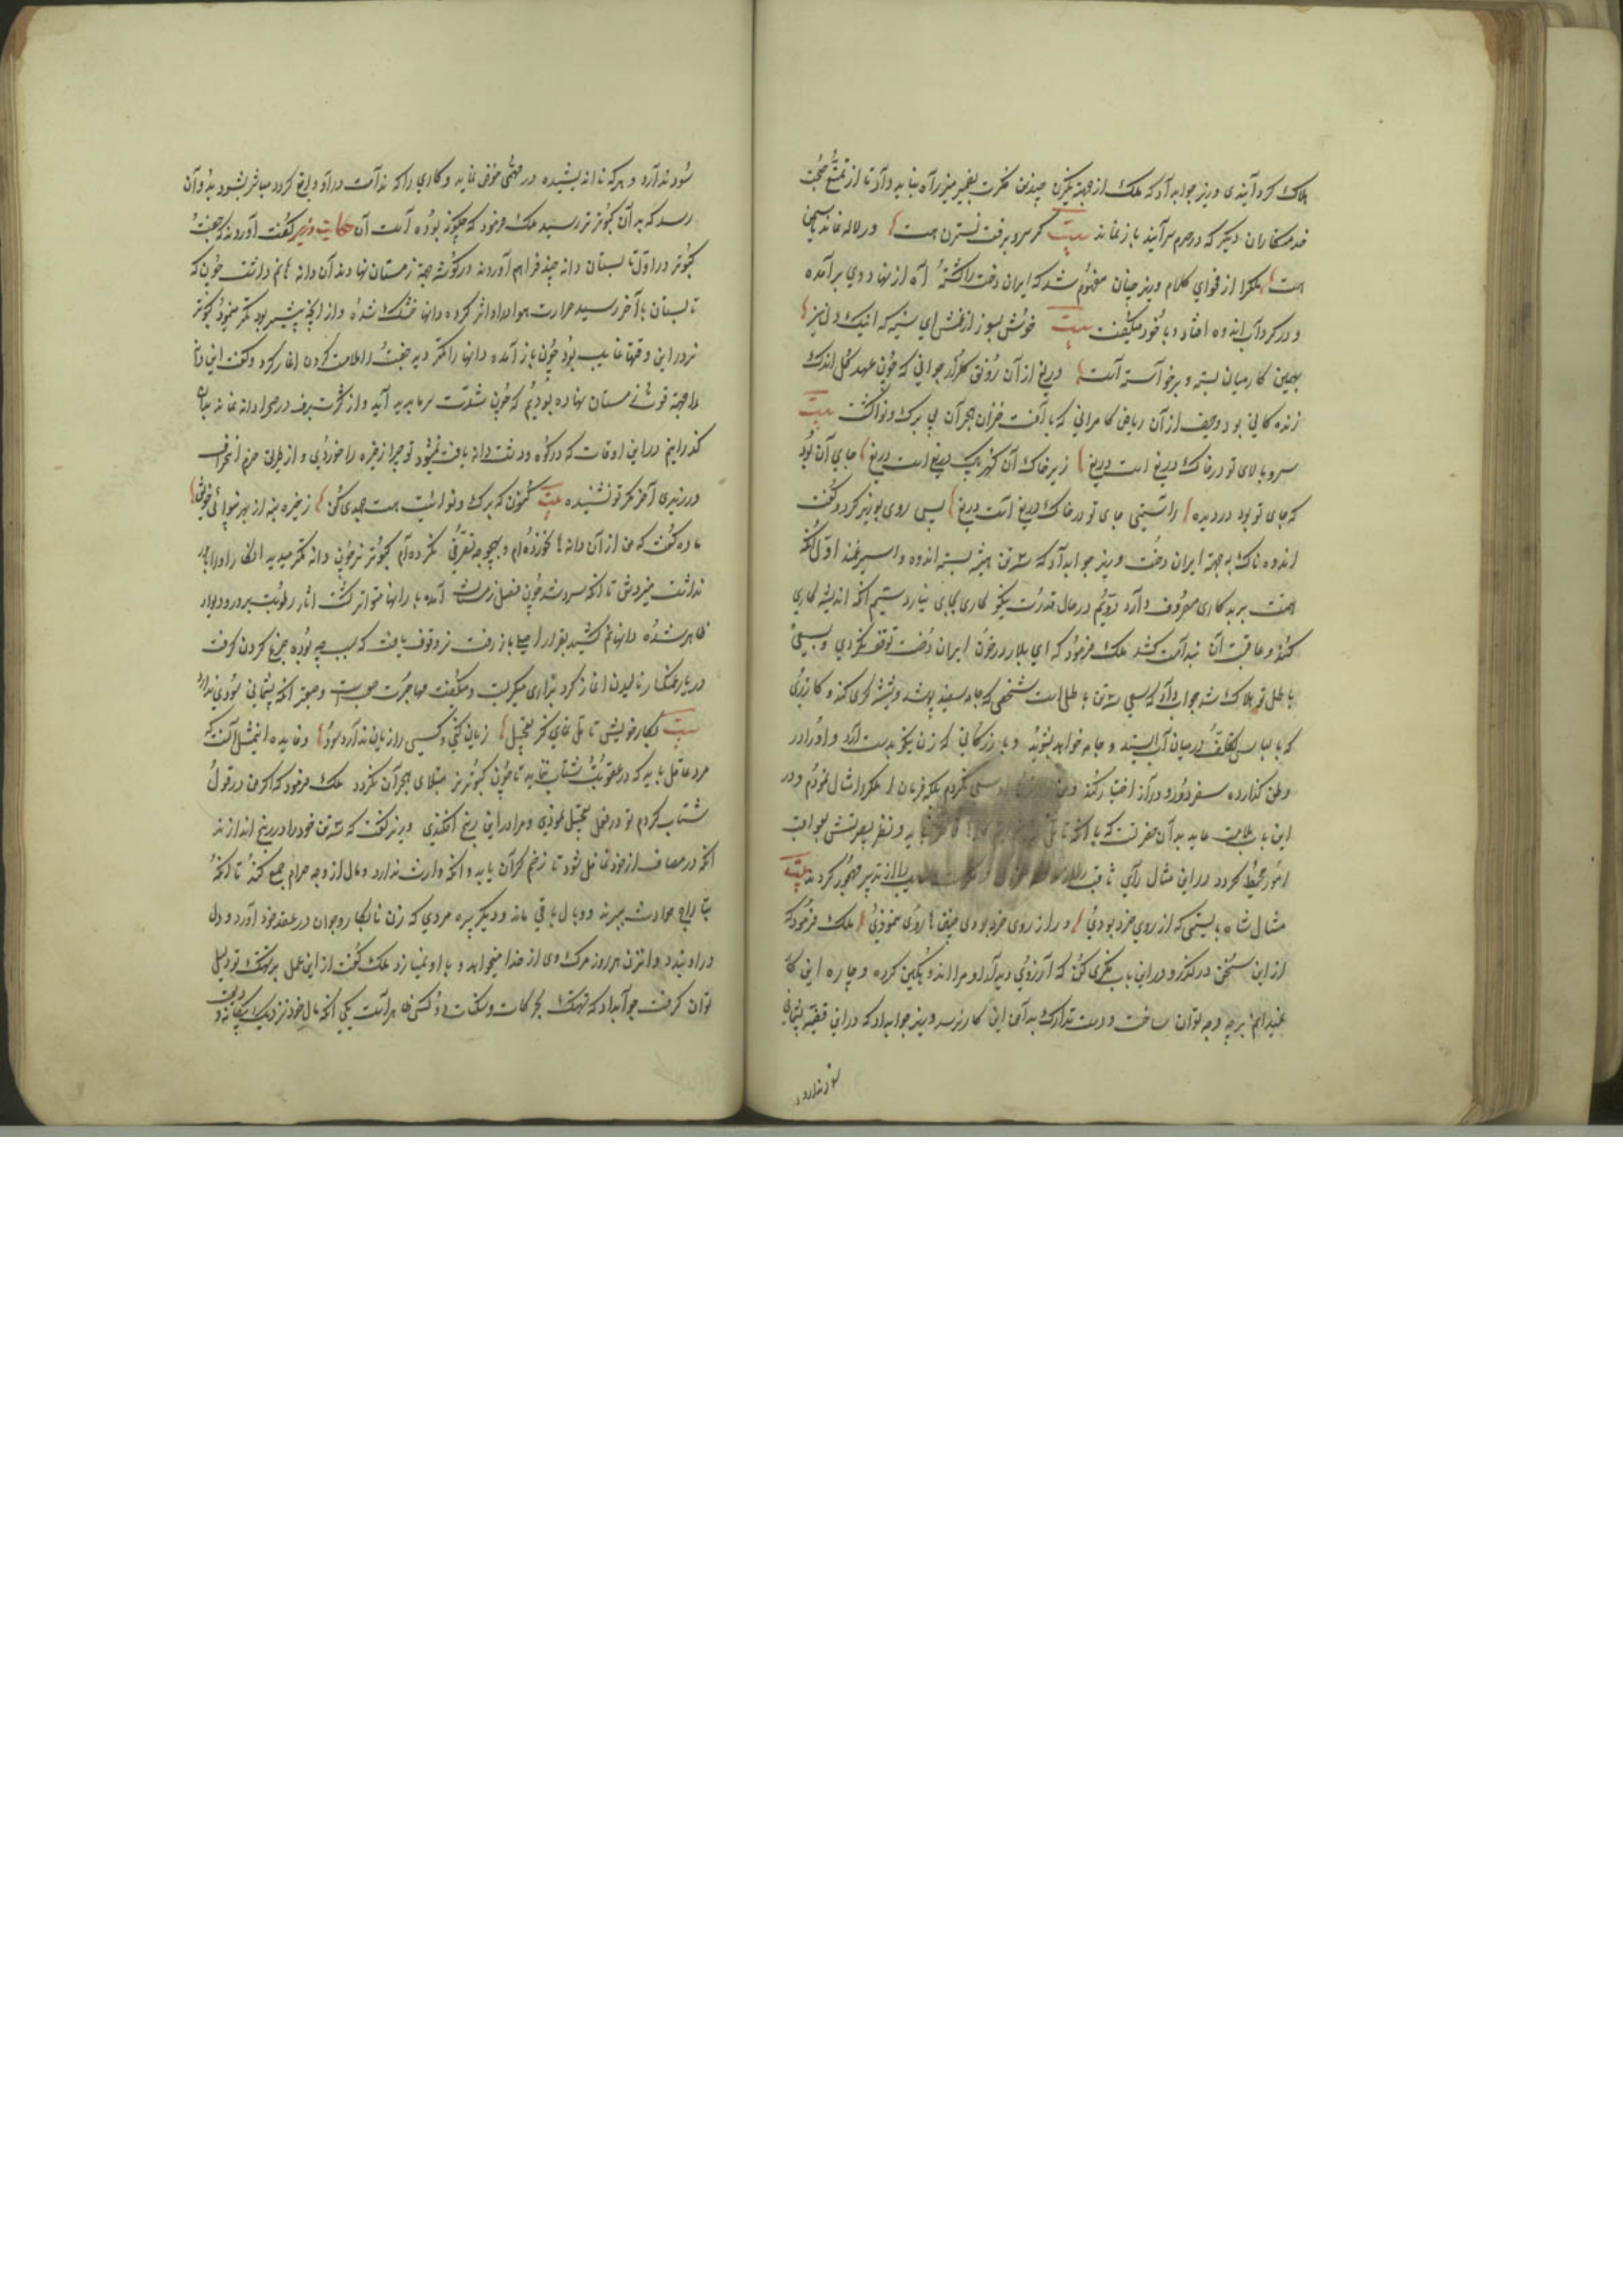 هلاک کرد آیندی وزیر جواب داد که ملک از جهة یکزن چندین فکرت بضمیر منیر راه نیابد داد تا از تمتع صحبت
خدمتکاران دیکر که در حرم سرآیند باز نماند بیت کر سرو برفت نسترن هست و ر لاله نماند یاسمن
هست ملکرا از فحوای کلام وزیر چنان مفهوم شد که ایران دخت را کشته آه از نهاد وی برآمده
و در کرداب اندوه افتاد و با خود میکفت بیت خوش بسوز از غمش ای شمع که اینک دل نیز
بهمین کار میان بسته و برخواسته است دریغ از آن رونق کلزار جوانی که چون عهد کل اندک
زنده کانی بود و حیف از آن ریاض کامرانی که با آفت خزان هجران بی برک و نوا کشت بیت
سرو بالای تو در خاک دریغ است دریغ زیر خاک آن کهر پاک دریغ است دریغ جای آن بود
که جای تو بود در دیده راستی جای تو در خاک دریغ است دریغ پس روی بوزیر کرد و کفت
اندوه ناک به جهة ایران دخت وزیر جواب داد که سه تن همیشه بسته اندوه و اسیر غمند اول آنکه
همت بر بدکاری مصروف دارد دویم در حال قدرت نیکو کاری بجای نیارد سیم آنکه اندیشه کاری
کند و عاقبت آن ندامت کشد ملک فرمود که ای بلار در خون ایران دخت توقف نکردی و بسعی
باطل تو هلاک شد جواب داد که سعی سه تن باطل است شخصی که جامه سفید پوشد و شیشه کری کند و کازری
که با لباس تکلف در میان آب ایستد و جامه خواهد بشوید و بازرکانی که زن نیکو بدست آرد و او را در
وطن کذارده سفر دور و دراز اختیار کند و من سعی نکردم بلکه فرمان ملکرا امتثال نمودم و در
این باب ملامت عاید بدان حضرت که با آنکه نماید و نظر بصیرتش بعواقب
امور محیط کردد در این مثال رای ثاقب را از تدبیر مهجور کرد بیت
مثال شاه بایستی که از روی خرد بودی ور از روی خرد بودی چنین ها روی ننمودی ملک فرمود که
از این سخن درکذر و در این باب فکری کن که آرزوی دیدار او مرا اندوهکین کرده و چاره این کار
نمیدانم برچه وجه توان ساخت و دست تدارک بدامن این کار نرسد وزیر جواب داد که در این قضیه پشیمانی
سود ندارد
سود ندارد و هر که نااندیشیده در مهمی خوض نماید و کاری را که ندامت در او واقع کردد مباشر بشود بدو آن
رسد که به آن کبوتر نر رسید ملک فرمود که چکونه بوده است آن حکایت وزیر کفت آورده‌اند که جفت
کبوتر در اول تابستان دانه چند فراهم آوردند در کوشه جهة زمستان نهادند آن دانه ها نم داشت چون که
تابستان باخر رسید حرارت هوا در او اثر کرده دانها خشک شده و از آنچه پیشتر بود کمتر مینمود کبوتر
نر در این وقتها غایب بود چون باز آمده دانها را کمتر دید جفت را ملامت کردن آغاز کرد و کفت این دانها
ما جهة قوت زمستان نهاده بودیم که چون شدت سرما پدید آید و از کثرت برف در صحرا دانه نماند بدان
کذرانیم در این اوقات که در کوه و دشت دانه یافت میشود تو چرا ذخیره را خوردی و از طریق حزم انحراف
ورزیدی آخر مکر تو نشنیده بیت کنون که برک و نوائیت هست جهدی کن ذخیره بنه از بهر بینوائی خویش
ماده کفت که من از آن دانه ها نخورده‌ام و بهیچ وجه تصرفی نکرده‌ام کبوتر نر چون دانه کمتر میدید انکار او را باور
نداشت میزدش تا آنکه سرد شد چون فصل زمستان آمده بارانها متواتر کشت اثار رطوبت بر در و دیوار
ظاهر شده دانها نم کشیده بقرار اصل باز رفت نر وقوف یافت که سبب چه بوده جزع کردن کرفت
بیت بکار خویش تامل نمای مکن تعجیل زیان کنی و کسی را زیان ندارد سود و فایده این مثل آنست که
مرد عاقل باید که در عقوبت شتاب ننماید تا چون کبوتر نر مبتلای هجران نکردد ملک فرمود که اکر من در قول
شتاب کردم تو در فعل تعجیل نمودی و مرا در این رنج افکندی وزیر کفت که سه تن خود را در رنج اندازند
آنکه در مصاف از خود غافل شود تا زخم کران یابد و آنکه وارث ندارد و مال از وجه حرام جمع کند تا آنکه
بتاراج حوادث ببرند و وبال باقی ماند و دیکر پیره مردی که زن نابکار و جوان در عقد خود آورد و دل
در او بندد و آنزن هر روز مرک وی از خدا میخواهد و با او نمیسازد ملک کفت از این عمل بر تهتک تو دلیل
توان کرفت جواب داد که تهتک بحرکات و سکنات دو کس ظاهر است یکی آنکه مال خود نزدیک بیکانه ودیعت